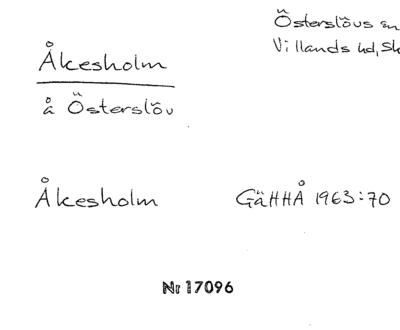 Österslövs sn
Villands hd, Sk
Åkesholm
å Österslöv
Åkesholm GÄHHÅ 1963:70
Nr 17096